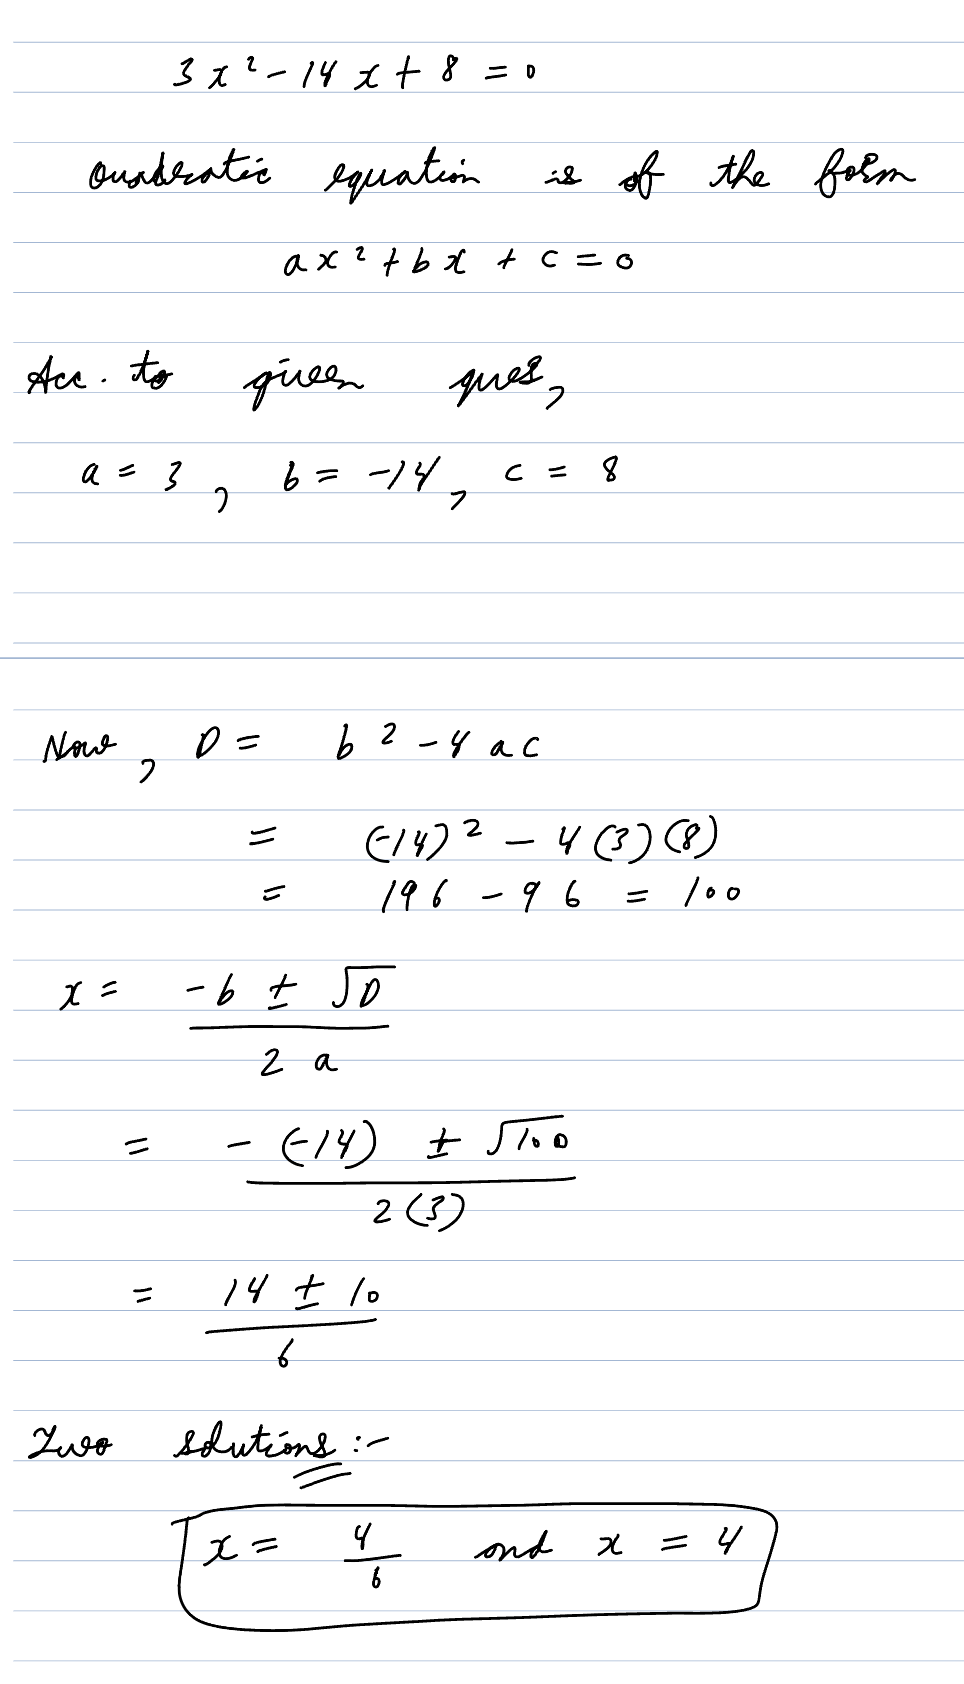 3x² - 14x + 8 = 0
Quadratic equation is of the form
ax² + bx + c = 0
Acc. to given ques,
a = 3, b = -14, c = 8
Now, D = b² - 4ac
= (-14)² - 4(3)(8)
= 196 - 96 = 100
x = (-b ± √D) / (2a)
= (-(-14) ± √100) / (2(3))
= (14 ± 10) / 6
Two solutions :-
x = 4/6 and x = 4